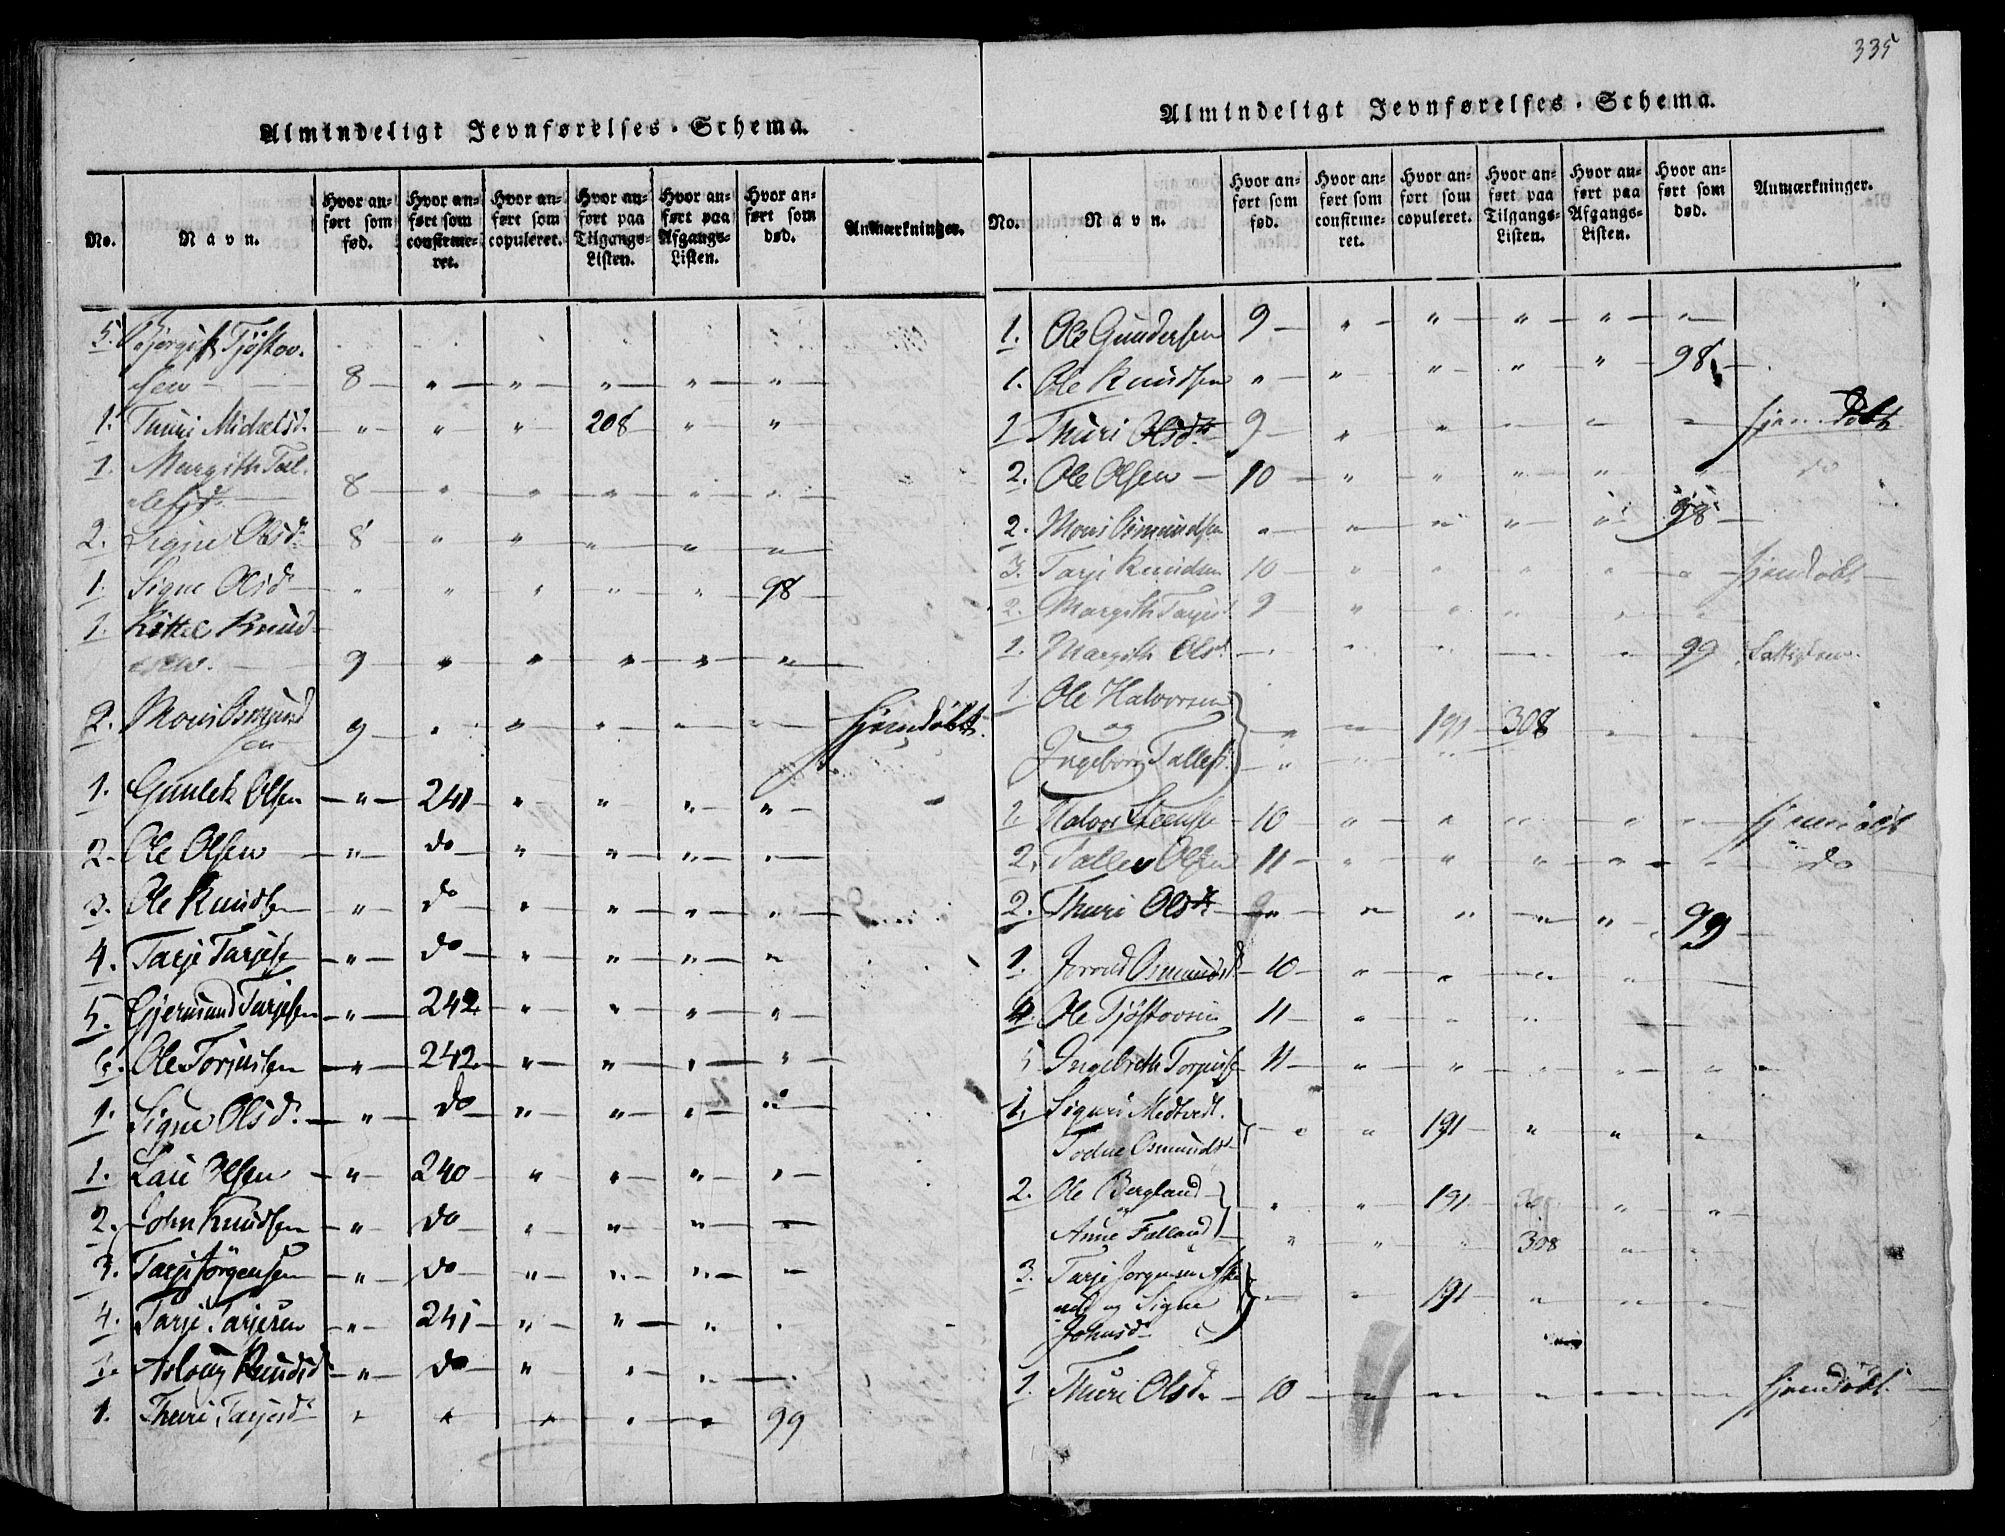 335
Almindeligt Jevnførelses-Schema.
No. Navn. Hvor anført som fød. Hvor anført som confirmeret. Hvor anført som copuleret. Hvor anført paa Tilgangs-Listen. Hvor anført paa Afgangs-Listen. Hvor anført som død. Anmærkninger.
5. Tjøstov-
sen 8 " " " " "
1. Thuri Michelsd. " " " 208 " "
1. Margith Tal-
lefsd. 8 " " " " "
2. Signe Olsd. 8 " " " " "
1. Signe Olsd " " " " " 98
1. Kittel Knud-
sen. 9 " " " " "
2. Mons Osmund
sen 9 " " " " " hjemdøbt.
1. Gunlek Olsen " 241 " " " "
2. Ole Olsen " do " " " "
3. Ole Knudsen " do " " " "
4. Tarje Tarjesen " do " " " "
5. Gjermund Tarjesen " 242 " " " "
6. Ole Torjusen " 242 " " " "
1. Signe Olsd. " do " " " "
1. Lau Olsen " 240 " " " "
2. John Knudsen " do " " " "
3. Tarje Jørgensen " do " " " "
4. Tarje Tarjesen " 241 " " " "
1. Asloug Knudsd " do " " " "
1. Thuri Tarjesd " " " " " 99
Almindeligt Jevnførelses-Schema.
No. Navn. Hvor anført som fød. Hvor anført som confirmeret. Hvor anført som copuleret. Hvor anført paa Tilgangs-Listen. Hvor anført paa Afgangs-Listen. Hvor anført som død. Anmærkninger.
1. Ole Gundersen 9 " " " " "
1. Ole Knudsen " " " " " 98
1 Thuri Olsd. 9 " " " " " hjemdøbt
2. Ole Olsen 10 " " " " " do
2. Mons Osmundsen " " " " " 98
3. Tarje Knudsen 10 " " " " " hjemdøbt
2. Margith Tarjesd 9 " " " " "
1. Margith Olsd " " " " " 99
1. Ole Halvorsen
og " " 191 308 " "
Ingeborg Tallefsd. " " "
1. Halvor Steensen 10 " " " " " hjemdøbt
2. Tallev Olsen 11 " " " " " do
2. Thuri Olsd. " " " " " 99
1. Jorond Osmundsd 10 " " " "
4. Ole Tjøstovsen 11 " " "
5 Ingebreth Torjusen 11 " " " " "
1. Sigurd Medtvedt.
Todne Osmundsd " " 191 " " "
2. Ole Bergland " " 191 " "
Anne Falland " " " 308 " "
3. Tarje Jørgensen
og Signe " " 191 " " "
Johnsd
1. Thuri Olsd. 10 " " " " " hjemdøbt.